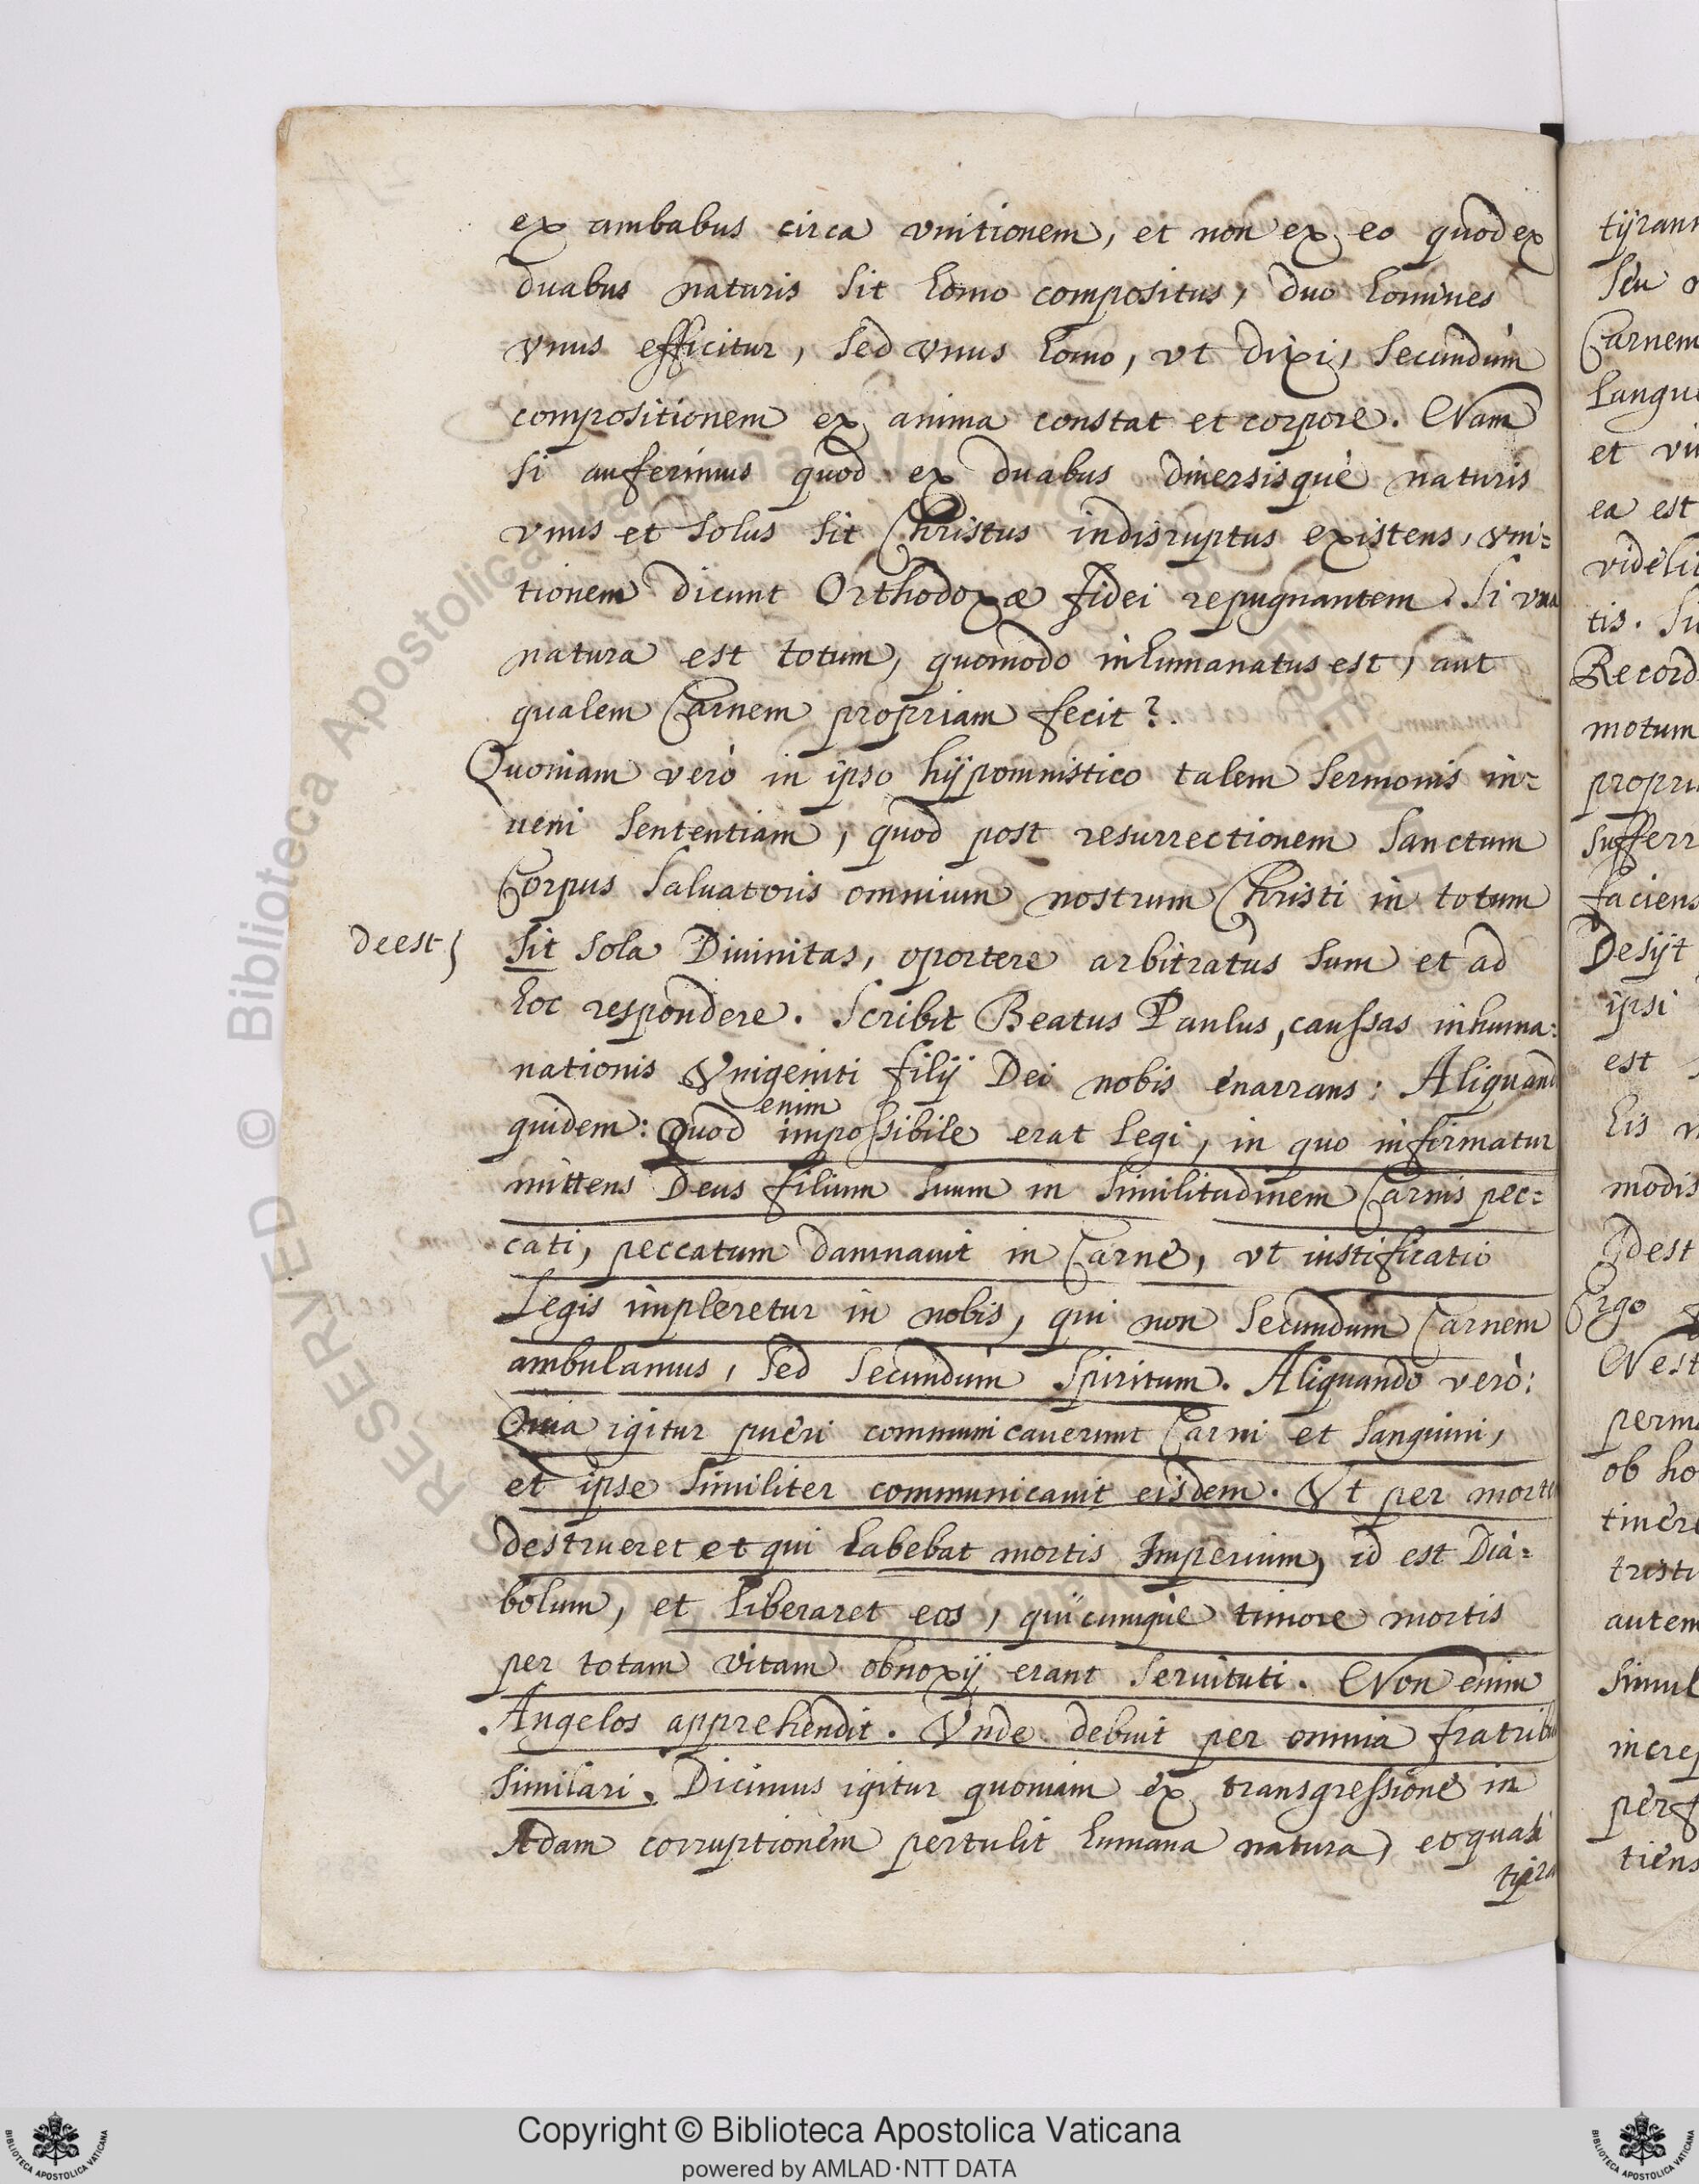 ex ambabus circa vnitionem, et non ex eo quod ex
duabus naturis sit homo compositus, duo homines
vnus efficitur, sed vnus homo, vt dixi, secundùm
compositionem ex anima constat et corpore. Nam
si auferimus quod ex duabus diuersisquè naturis
vnus et solus sit Christus indisruptus existens, vni=
tionem dicunt Orthodoxæ fidei repugnantem. Si vna
natura est totum, quomodo inhumanatus est, aut
qualem Carnem propriam fecit?.
Quoniam verò in ipso hÿpomnistico talem sermonis in=
ueni sententiam, quod post resurrectionem Sanctum
Corpus Saluatoris omnium nostrum Christi in totum
deest} sit sola Diuinitas, oportere arbitratus sum et ad
hoc respondere. Scribit Beatus Paulus, caussas inhuma=
nationis Vnigeniti filÿ Dei nobis enarrans: Aliquand
enim
quidem: Quod impossibile erat legi, in quo infirmatur
mittens Deus filium suum in similitudinem Carnis pec=
cati, peccatum damnauit in Carne, vt iustificatio
Legis impleretur in nobis, qui non secundum Carnem
ambulamus, sed secundùm Spiritum. Aliquando verò:
Quia igitur pueri communicauerunt Carni et Sanguini,
et ipse similiter communicauit eisdem. Vt per morte
destrueret et qui habebat mortis Imperium, id est Dia=
bolum, et liberaret eos, quicumque timore mortis
per totam vitam obnoxÿ erant seruituti. Non enim
Angelos apprehendit. Vnde debuit per omnia fratribu
similari. Dicimus igitur quoniam ex transgressione in
Adam corruptionem pertulit humana natura, et quasi
tÿra
tÿrann
seu
Carnem
Langue
et
ea est
videlic
tis. Su
Record
motum
propri
sufferr
faciens
Desÿt
ipsi
est
his
modis
Idest
Ergo
Nest
perma
ob ho
timere
tristi
autem
simul
increp
perf
tiens
RESERVED © Biblioteca Apostolica Vaticana
Copyright © Biblioteca Apostolica Vaticana
powered by AMLAD·NTT DATA
BIBLIOTECA APOSTOLICA VATICANA
BIBLIOTECA APOSTOLICA VATICANA